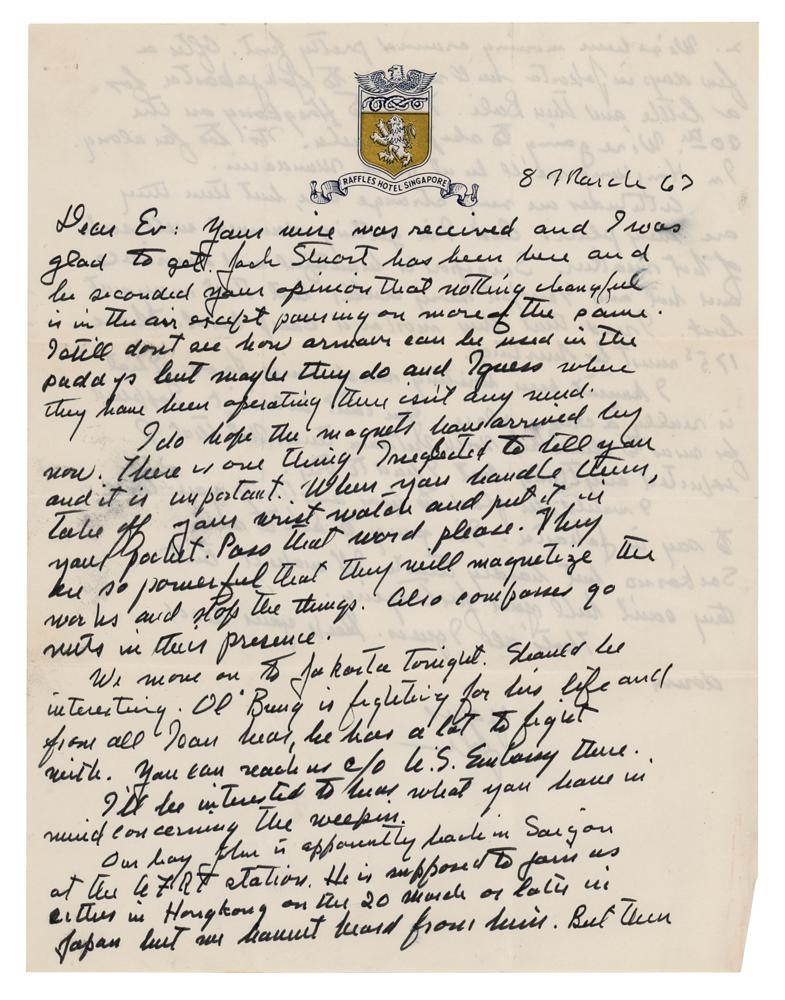 RAFFLES HOTEL SINGAPORE
8 March 67
Dear Ev: Your wire was received and I was
glad to get. Jack Stuart has been here and
he seconded your opinion that nothing changeful
is in the air except pouring on more of the same.
I still dont see how armour can be used in the
paddys but maybe they do and I guess where
they have been operating there isn't any mud.
I do hope the magnets have arrived by
now. There is one thing I neglected to tell you
and it is important. When you handle them,
take off your wrist watch and put it in
your pocket. Pass that word please. They
are so powerful that they will magnetize the
works and stop the things. Also compasses go
nuts in their presence.
We move on to Jakarta tonight. Should be
interesting. Ol' Bung is fighting for his life and
from all I can hear, he has a lot to fight
with. You can reach us c/o U.S. Embassy there.
I'll be interested to hear what you have in
mind concerning the weepin.
Our boy John is apparently back in Saigon
at the station. He is supposed to join us
either in Hongkong on the 20 March or later in
Japan but we havent heard from him. But then